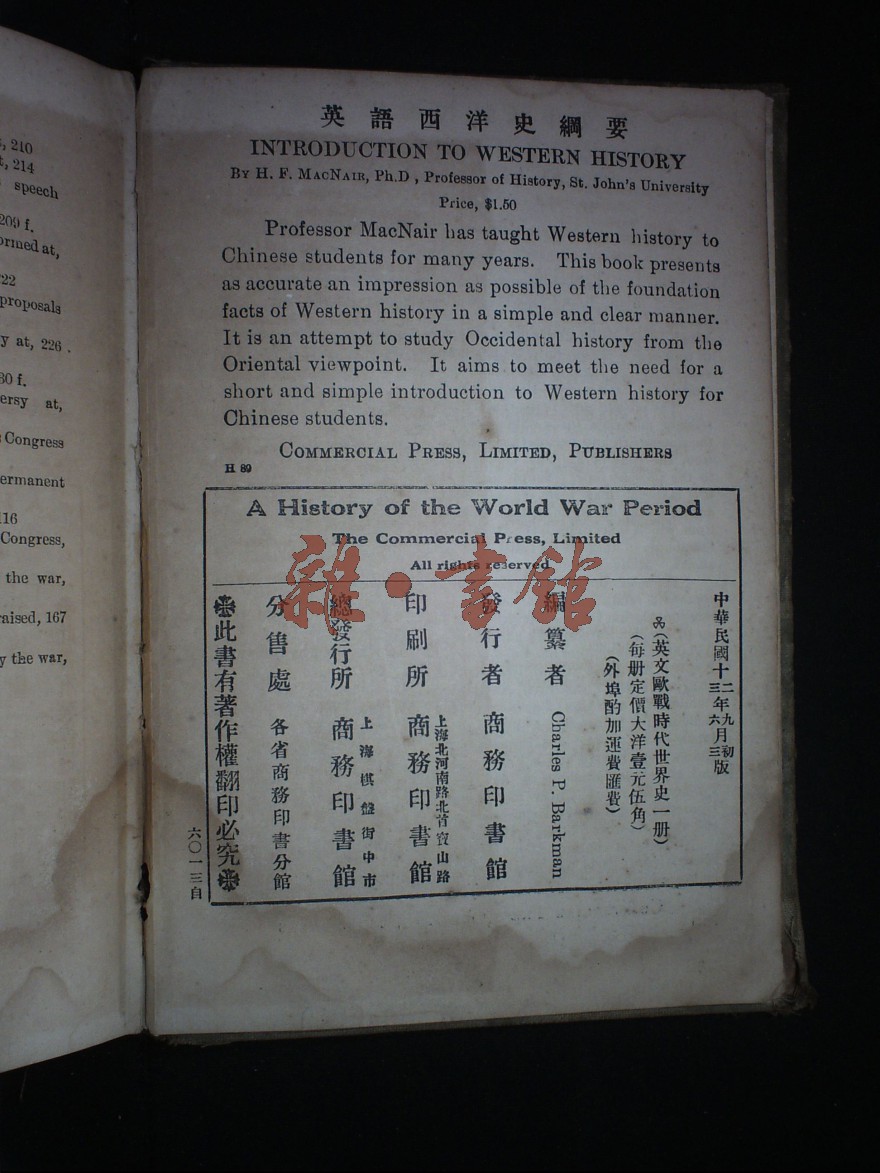 , 210
t, 214
speech
209 f.
ormed at,
22
proposals
y at, 226 .
30 f.
ersy at,
Congress
ermanent
16
Congress,
the war,
raised, 167
y the war,
英語西洋史綱要
INTRODUCTION TO WESTERN HISTORY
BY H. F. MACNAIR, Ph.D , Professor of History, St. John's University
Price, $1.50
Professor MacNair has taught Western history to
Chinese students for many years. This book presents
as accurate an impression as possible of the foundation
facts of Western history in a simple and clear manner.
It is an attempt to study Occidental history from the
Oriental viewpoint. It aims to meet the need for a
short and simple introduction to Western history for
Chinese students.
COMMERCIAL PRESS, LIMITED, PUBLISHERS
H 89
A History of the World War Period
The Commercial Press, Limited
All rights reserved
中華民國十二年九月初版
十三年六月三版
(英文歐戰時代世界史一册)
(每册定價大洋壹元伍角)
(外埠酌加運費匯費)
編纂者 Charles P. Barkman
發行者 商務印書館
印刷所 上海北河南路北首寶山路 商務印書館
總發行所 上海棋盤街中市 商務印書館
分售處 各省商務印書分館
此書有著作權翻印必究
六〇一三自
雜·書館